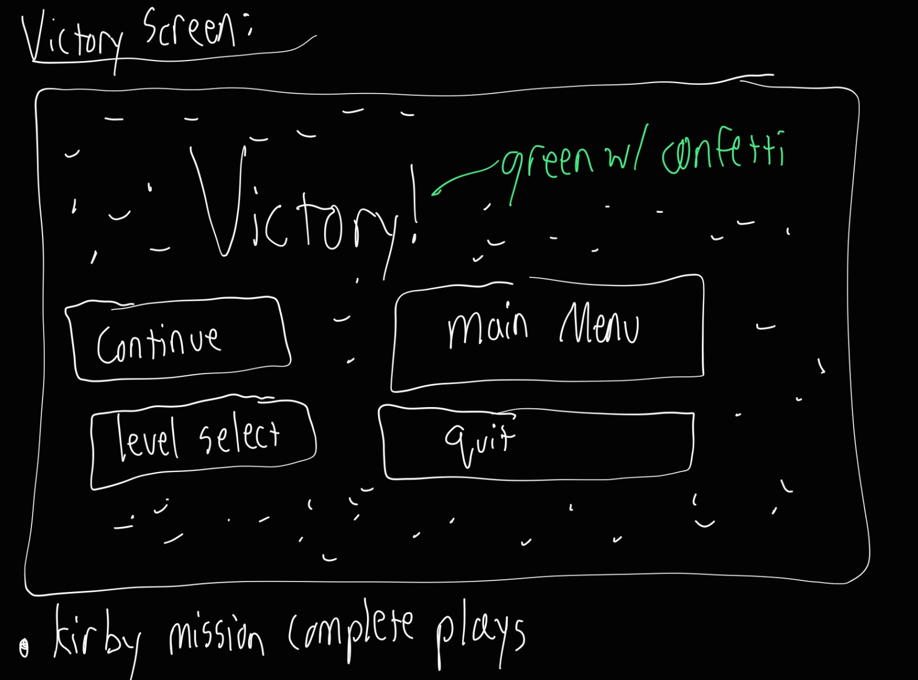 Victory Screen:
Victory!
green w/ confetti
Continue
Main Menu
level select
quit
• kirby mission complete plays